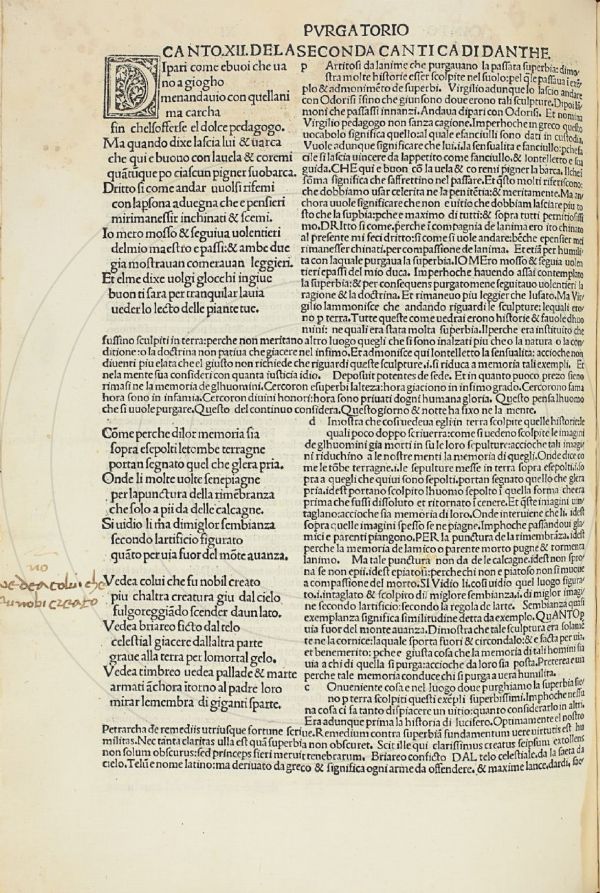 PVRGATORIO
CANTO.XII.DELA SECONDA CANTICA DI DANTHE.
DIpari come ebuoi che ua
no a giogho
menandauio con quellani
ma carcha
fin chelsofferse el dolce pedagogo.
Ma quando dixe lascia lui & uarca
che qui e buono con la uela & co remi
quãtũque po ciascun pigner suo barca.
Dritto si come andar uuolsi rifemi
con lapsona aduegna che e pensieri
mi rimanesser inchinati & scemi.
Io mero mosso & seguiua uolentieri
del mio maestro e passi: & ambe due
gia mostrauan comerauan leggieri.
Et elme dixe uolgi glocchi ingiue
buon ti sara per tranquilar lauia
ueder lo lecto delle piante tue.
p Artitosi da lanime che purgauano la passata superbia: dimo
stra molte historie esser scolpite nel suolo:
plo & admonimẽto de superbi. Virgilio adunque lo lascio andare
con Odorisi
moni che passassi innanzi. Andaua dipari con Odorisi. Et nomina
Virgilio pedagogo non sanza cagione. Imperhoche in greco questo
uocabolo significa quello: al quale efanciulli sono dati in custodia.
Vuole adunque significare che lui .i. la sensualita e fanciullo:
cile si lascia uincere da lappetito come fanciullo. & lontellecto e sua
guida. CHE qui e buon cõ la uela & co remi pigner la barca.
sõma significa che saffrettino nel passare. Et q̃sto molti riferiscono:
che dobbiamo usar celerita ne la penitẽtia: & meritamente. Ma an
chora uuole significare che non e uitio che dobbiam lasciare piu to
sto che la supbia: pche e maximo di tutti: & sopra tutti
mo. DRItto si come. perche i compagnia de lanima ero ito chinato
al presente mi feci dritto: si come si uole andare: bẽche epensier mei
rimanesser chinati. per compassione de lanima. Et etiã per humili
ta con laquale purgaua la superbia. IO MEro mosso & seguia uolen
tieri epassi del mio duca. Imperhoche hauendo assai contemplato
la superbia: & per consequens purgatomene seguitauo uolentieri la
ragione & la doctrina. Et rimaneuo piu leggier che lusato. Ma Vir
gilio lammonisce che andando riguardi le sculpture: lequali ero
no p terra. Tutte queste come uedrai erono historie & fauole dhuo
mini: ne quali era stata molta superbia. Ilperche era instituito che
fussino sculpiti in terra: perche non meritano altro luogo quegli che si sono inalzati piu che o la natura o la con
ditione: o la doctrina non patiua che giacere nel infimo. Et admonisce qui lontelletto la sensualita: accioche non
diuenti piu elata che el giusto non richiede che riguardi quelle sculpture .i. si riduca a memoria tali exempli. Et
nela mente sua consideri con quanta iusticia idio. Deposuit potentes de sede. Et in quanto prezo sieno
rimasi ne la memoria de glhuomini. Cercoron esuperbi lalteza: hora giaciono in infimo grado. Cercorono fama
hora sono in infamia. Cercoron diuini honori: hora sono priuati dogni humana gloria. Questo pensa lhuomo
che si uuole purgare. Questo del continuo considera. Questo giorno & notte ha fixo ne la mente.
Cõme perche di lor memoria sia
sopra esepolti le tombe terragne
portan segnato quel che glera pria.
Onde li molte uolte sene piagne
per la punctura della rimẽbranza
che solo a pii da delle calcagne.
Si uidio li ma di miglor sembianza
secondo lartificio figurato
quãto per uia fuor del mõte auanza.
Vedea colui che fu nobil creato
piu chaltra creatura giu dal cielo
fulgoreggiãdo scender da un lato.
Vedea briareo ficto dal telo
celestial giacere dallaltra parte
graue alla terra per lo mortal gelo.
Vedea timbreo uedea pallade & marte
armati ãchora itorno al padre loro
mirar lemembra di giganti sparte.
no
uedea colui che
fu nobi creato
d Imostra che cosi uedeua egli in terra scolpite quelle historie: le
quali poco doppo scriuerra: come si uedeno scolpite le imagini
de glhuomini gia morti in su le loro sepulture: accioche tali imagi
ni riduchino a le nostre menti la memoria di quegli. Onde dice co
me le tõbe terragne .i. le sepulture messe in terra sopra esepolti .i. so
pra a quegli che quiui sono sepolti. portan segnato quello che glera
pria. idest portano scolpito lhuomo sepolto i quella forma che era
prima che fussi dissoluto et ritornato i cenere. Et q̃ste imagini sin
tagliano: accioche sia memoria di loro. Onde interuiene che li. idest
sopra quelle imagini spesso se ne piagne. Imphoche passandoui gla
mici e parenti piangono. PER la punctura de la rimembrãza. idest
perche la memoria de lamico o parente morto pugne & tormenta
lanimo. Ma tale punctura non da de le calcagne. idest non spro
na se non epii. idest epiatosi: perche chi non e piatoso non si muoue
a compassione del morto. SI Vidio li. cosi uidio quel luogo figura
to .i. intaglato & scolpito di miglore sembianza .i. di miglor imagi
ne secondo lartificio: secondo la regola de larte. Sembianza quasi
exemplanza significa similitudine detta da exemplo. QuANTO p
uia fuor del monte auanza. Dimostra che tale sculptura era solamẽ
te ne la cornice: la quale sporta fuori & circondalo: & e facta per uia.
et benemerito: pche e giusta cosa che la memoria di tali homini sia
uia a chi di quella si purga: accioche da loro sia posta. Preterea e uia
perche tale memoria conduce chi si purga a uera humilita.
c Onueniente cosa e nel luogo doue purghiamo la superbia sie
no p terra scolpiti questi exẽpli superbissimi. Imphoche nessu
na cosa ci fa tanto dispiacere un uitio: quanto considerarlo in altri.
Era adunque prima la historia di lucifero. Optimamente el nostro
Petrarcha de remediis utriusque fortune scriue. Remedium contra superbiã fundamentum uere uirtutis est hu
militas. Nec tanta claritas ulla est quã superbia non obscuret. Scit ille qui clarissimus creatus seipsum extollens
non solum obscurus: sed princeps fieri meruit tenebrarum. Briareo confi cto DAL telo celestiale. da la saeta da
cielo. Telũ e nome latino: ma deriuato da greco & significa ogni arme da offendere. & maxime lance, dardi, sae